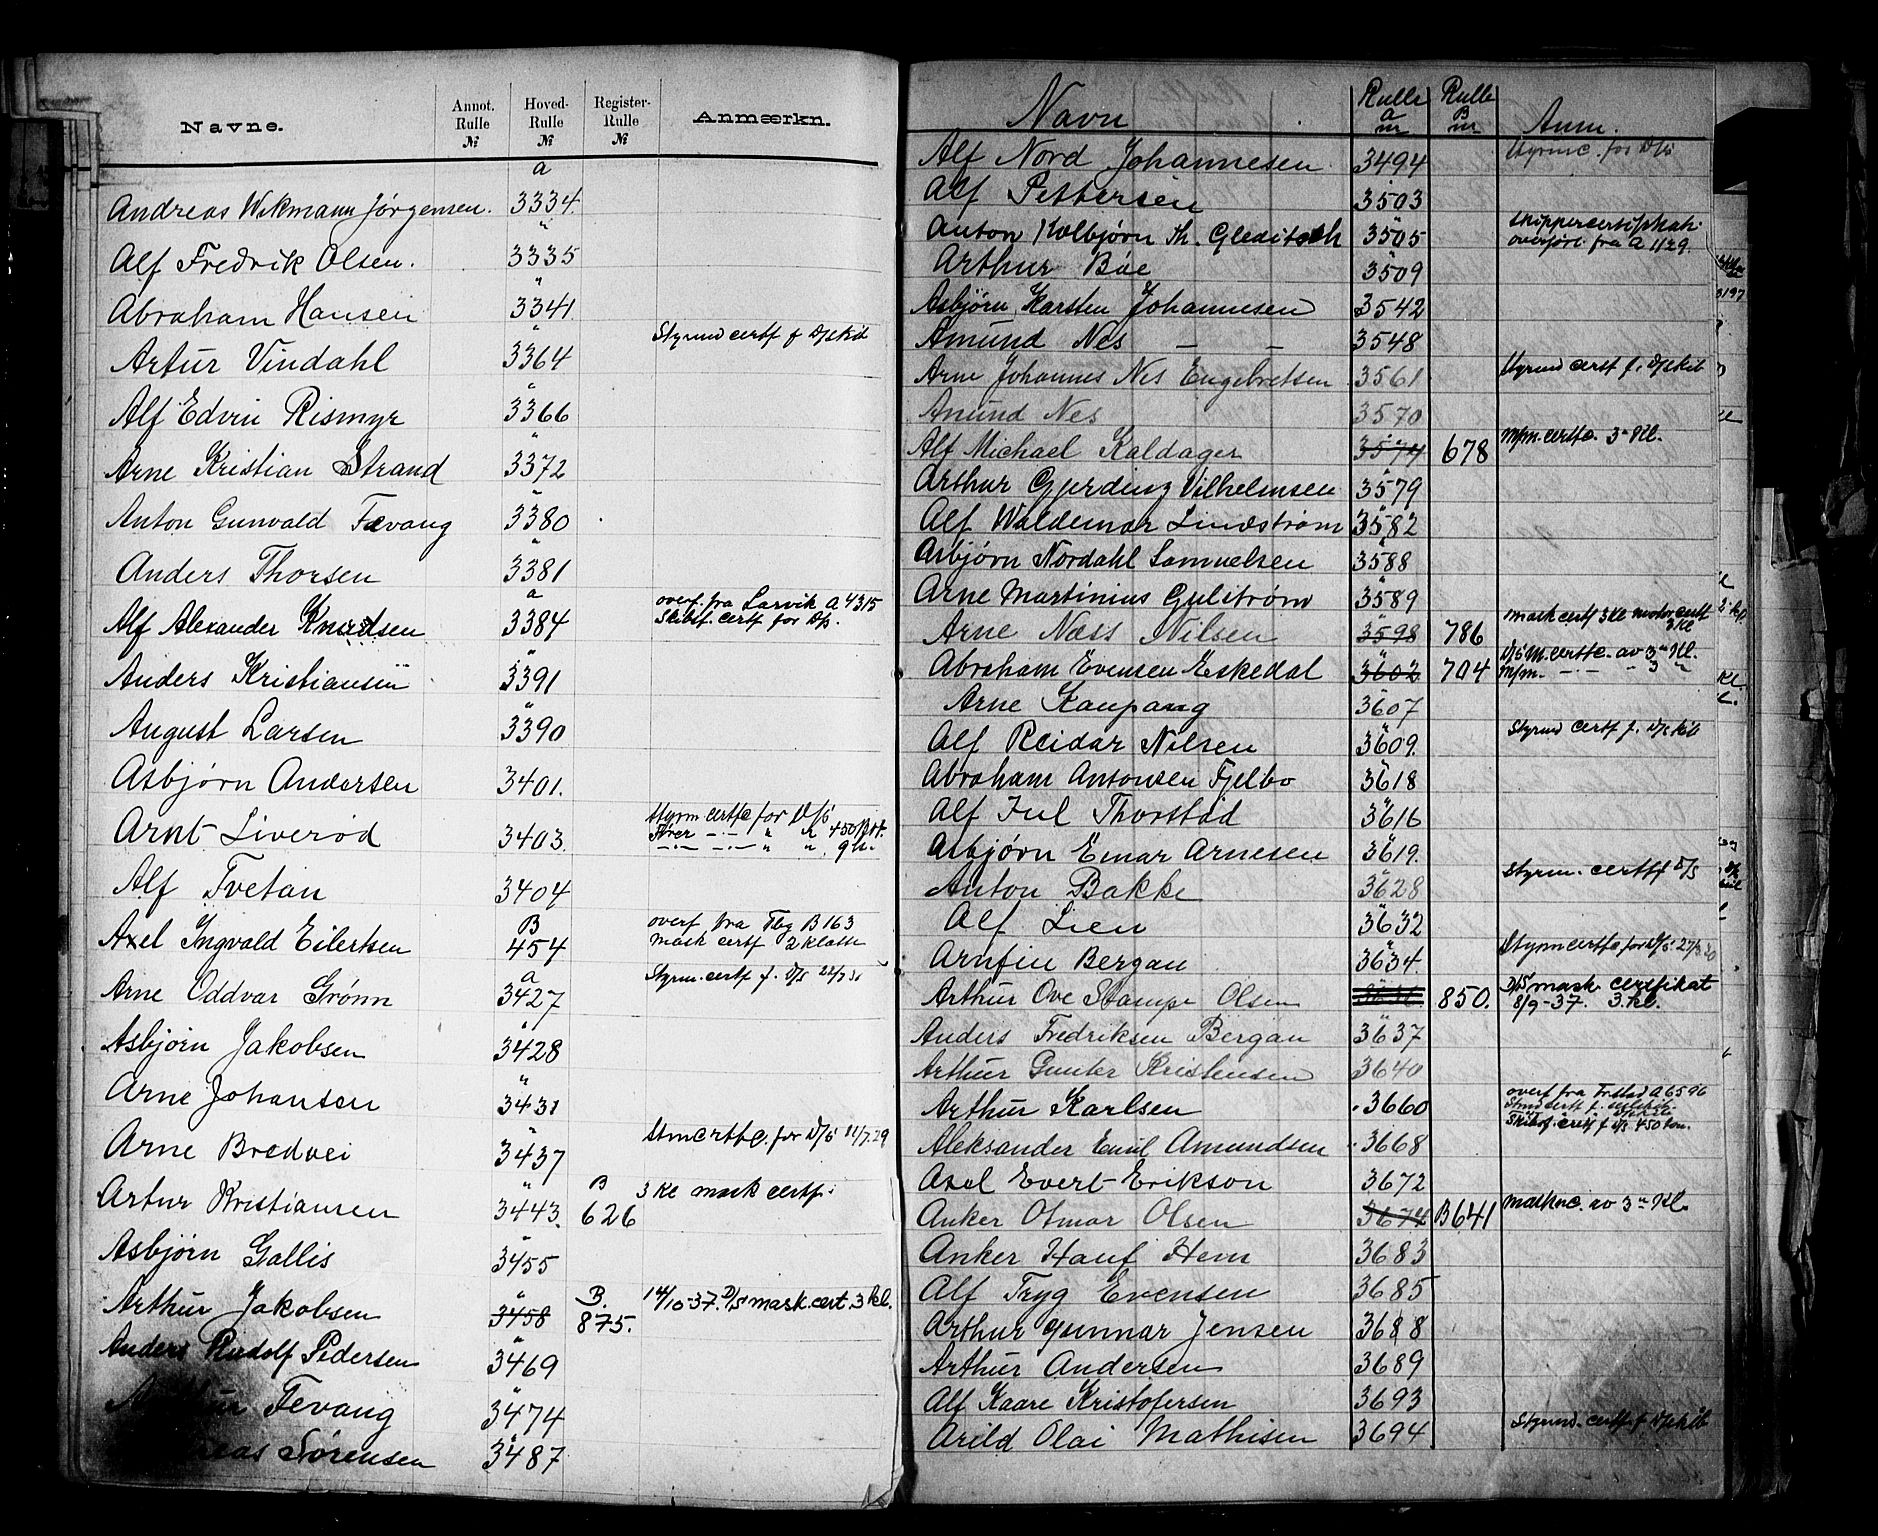 Navne. Annot. Rulle № Hoved-Rulle № Register-Rulle № Anmærkn.
a
Andreas Wikmann Jørgensen. 3334
Alf Fredrik Olsen. " 3335
Abraham Hansen " 3341
Artur Vindahl " 3364 Styrmd certf f D/skib
Alf Edvin Rismyr " 3366
Arne Kristian Strand " 3372
Anton Gunvald Fevang " 3380
Anders Thorsen " 3381
Alf Alexander Knudsen a 3384 overf. fra Larvik A 4315
Skibsf. certf for D/s.
Anders Kristiansen " 3391
August Larsen " 3390
Asbjørn Andersen 3401.
Arnt Liverød 3403. Styrm certfc for D/s
Fører
Alf Tvetan 3404
Axel Ingvald Eilertsen B 454 overf fra Tbg B 163
mask certf 2 klasse
Arne Oddvar Grønn a 3427 Styrm. certf f. D/s
Asbjørn Jakobsen " 3428
Arne Johansen " 3431
Arne Bredvei " 3437 Stmcertfc. for D/s 11/7.29
Artur Kristiansen " 3443. B 626 3 kl mask certf.
Asbjørn Gallis " 3455
Arthur Jakobsen " 3458 B. 875. 14/10-37. D/S mask.cert. 3 kl.
Anders Rudolf Pedersen " 3469
Fevang " 3474
Sørensen " 3487
Navn Rulle a nr Rulle B nr Anm.
Alf Nord Johannesen 3494 Styrmc. for D/s
Alf Pettersen 3503
Anton Kolbjørn Th. Gleditsch 3505 skippercertifikat.
overført fra A 1129.
Arthur Bøe 3509
Asbjørn Karsten Johannesen 3542
Amund Nes — — 3548
Arne Johannes Nes Engebretsen 3561 Styrmd certf f. D/skib
Anund Nes 3570
Alf Michael Kaldager 3574 678 M/m. certfc. 3die Kl.
Arthur Gjerding Vilhelmsen 3579
Alf Waldemar Lindstrøm 3582
Asbjørn Nordahl Samuelsen 3588
Arne Martinius Gulstrøm 3589
Arne Næss Nilsen 3598 786 mask certf 3 kl motor certf
3 kl
Abraham Evensen Eskedal 3602 704 D/s M. certfc. av 3die Kl.
M/m. — " — " 3 "
Arne Kaupang 3607
Alf Reidar Nilsen 3609. Styrmd certf f. D/skib
Abraham Antonsen Fjelbo 3618
Alf Jul Thorstad 3616
Asbjørn Einar Arnesen 3619.
Anton Bakke 3628 Styrm. certff D/s
Alf Lien 3632
Arnfin Bergan 3634. Styrmcertfc for D/s
Arthur Ove Stamps Olsen 850. D/S mask certifikat
8/9-37. 3. kl.
Anders Fredriksen Bergan 3637
Arthur Gunter Kristensen 3640
Arthur Karlsen 3660 overf fra Frstad A 6596
Skibsf. certf f D/s 450 ton.
Aleksander Emil Amundsen 3668
Axel Evert Erikson 3672
Anker Otmar Olsen 3674 B641 maskinc. av 3die Kl.
Anker Hauf Hem 3683
Alf Tryg Evensen 3685
Arthur Gunnar Jensen 3688
Arthur Andersen 3689
Alf Kaare Kristofersen 3693
Arild Olai Mathisen 3694 Styrmd. certf. f D/skib